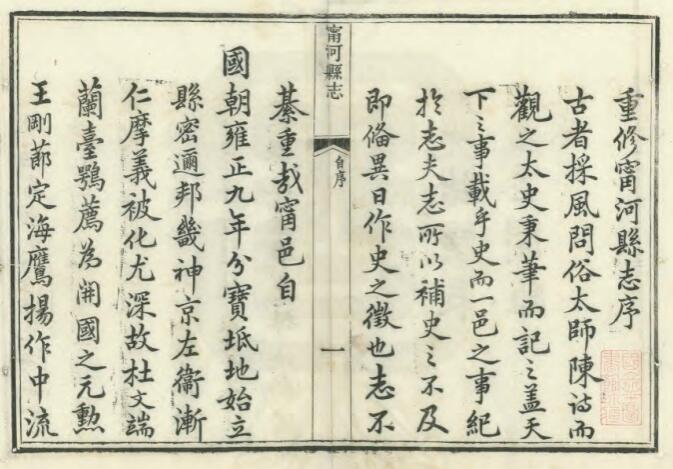 重修甯河縣志序
古者採風問俗太師陳詩而
觀之太史秉筆而記之蓋天
下之事載乎史而一邑之事紀
於志夫志所以補史之不及
即備異日作史之徵也志不
甯河縣志
自序
一
綦重哉甯邑自
國朝雍正九年分寶坻地始立
縣密邇邦畿神京左衛漸
仁摩義被化尤深故杜文端
蘭臺鶚薦為開國之元勳
王剛節定海鷹揚作中流